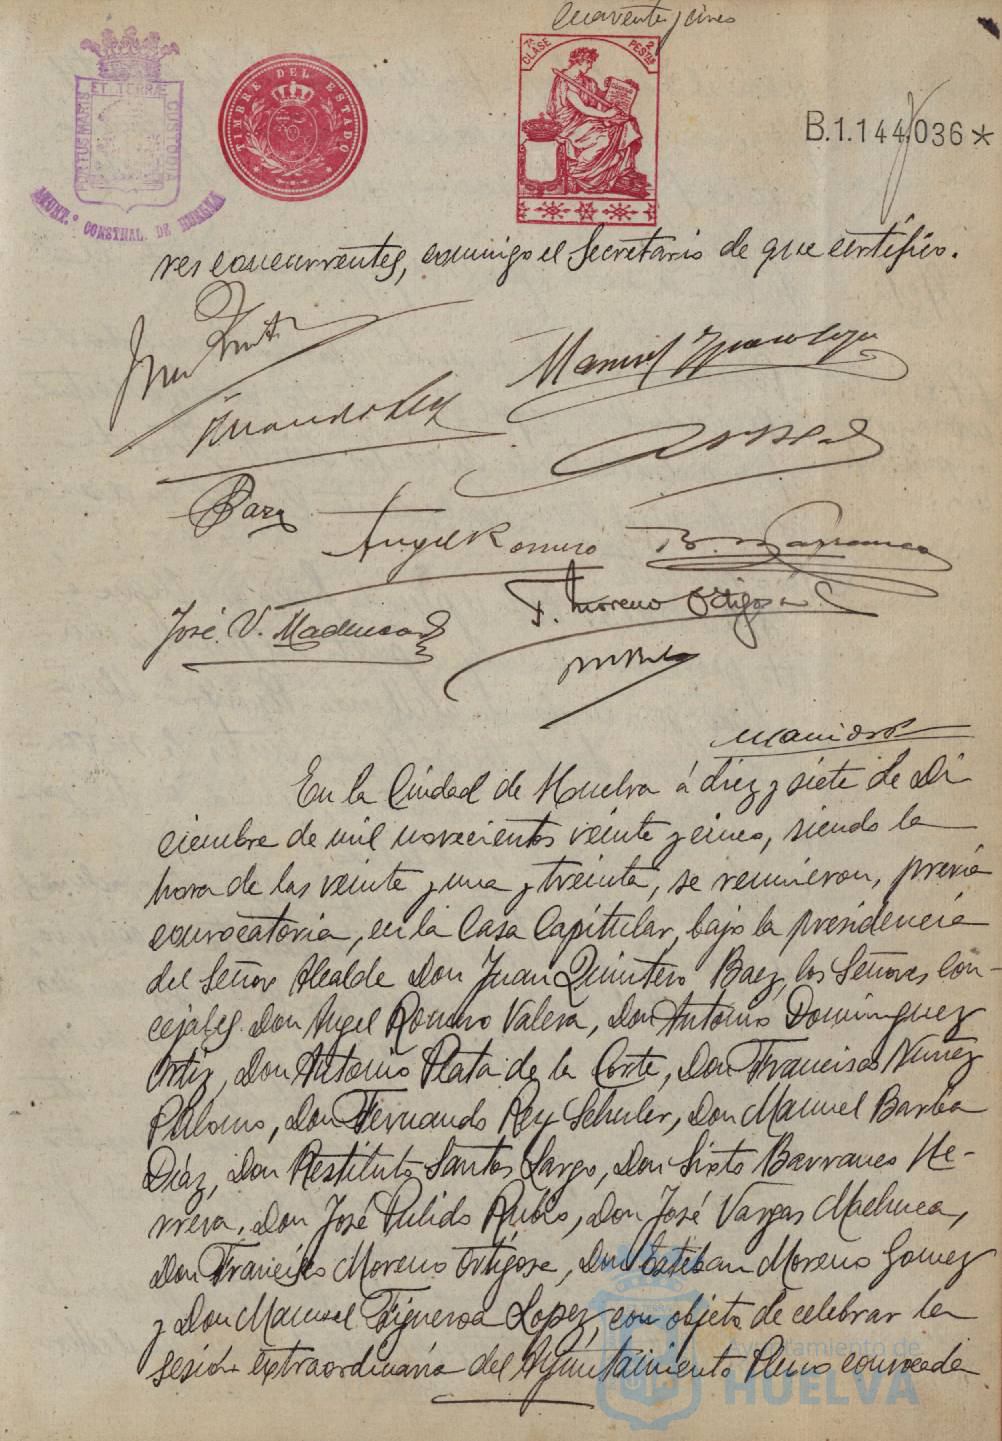 Cuarenta y cinco
PORTUS MARIS ET TERRÆ CUSTODIA
AYUNT.º CONSTNAL. DE HUELVA
TIMBRE DEL ESTADO
7ª CLASE
2 PESTAS
B.1.144,036*
res concurrentes, conmigo el Secretario de que certifico.
Juan Quint
Manuel Figueroa Lopez
Fernando Rey
Barba
Angel Romero
B. Barranco
F. Moreno Ortigosa
José V. Machuca
En la Ciudad de Huelva á diez y siete de Di
ciembre de mil novecientos veinte y cinco, siendo la
hora de las veinte y una y treinta, se reunieron, previa
convocatoria, en la Casa Capitular, bajo la presidencia
del Señor Alcalde Don Juan Quintero Baez, los Señores Con-
cejales Don Angel Romero Valera, Don Antonio Dominguez
Ortiz, Don Antonio Plata de la Corte, Don Francisco Nuñez
Palomo, Don Fernando Rey Schuler, Don Manuel Barba
Diaz, Don Restituto Santos Largo, Don Sixto Barranco He-
rrera, Don José Pulido Rubio, Don José Vargas Machuca,
Don Francisco Moreno Ortigosa, Don Esteban Moreno Gomez
y Don Manuel Figueroa Lopez, con objeto de celebrar la
sesión extraordinaria del Ayuntamiento Pleno convocada
Ayuntamiento de
HUELVA